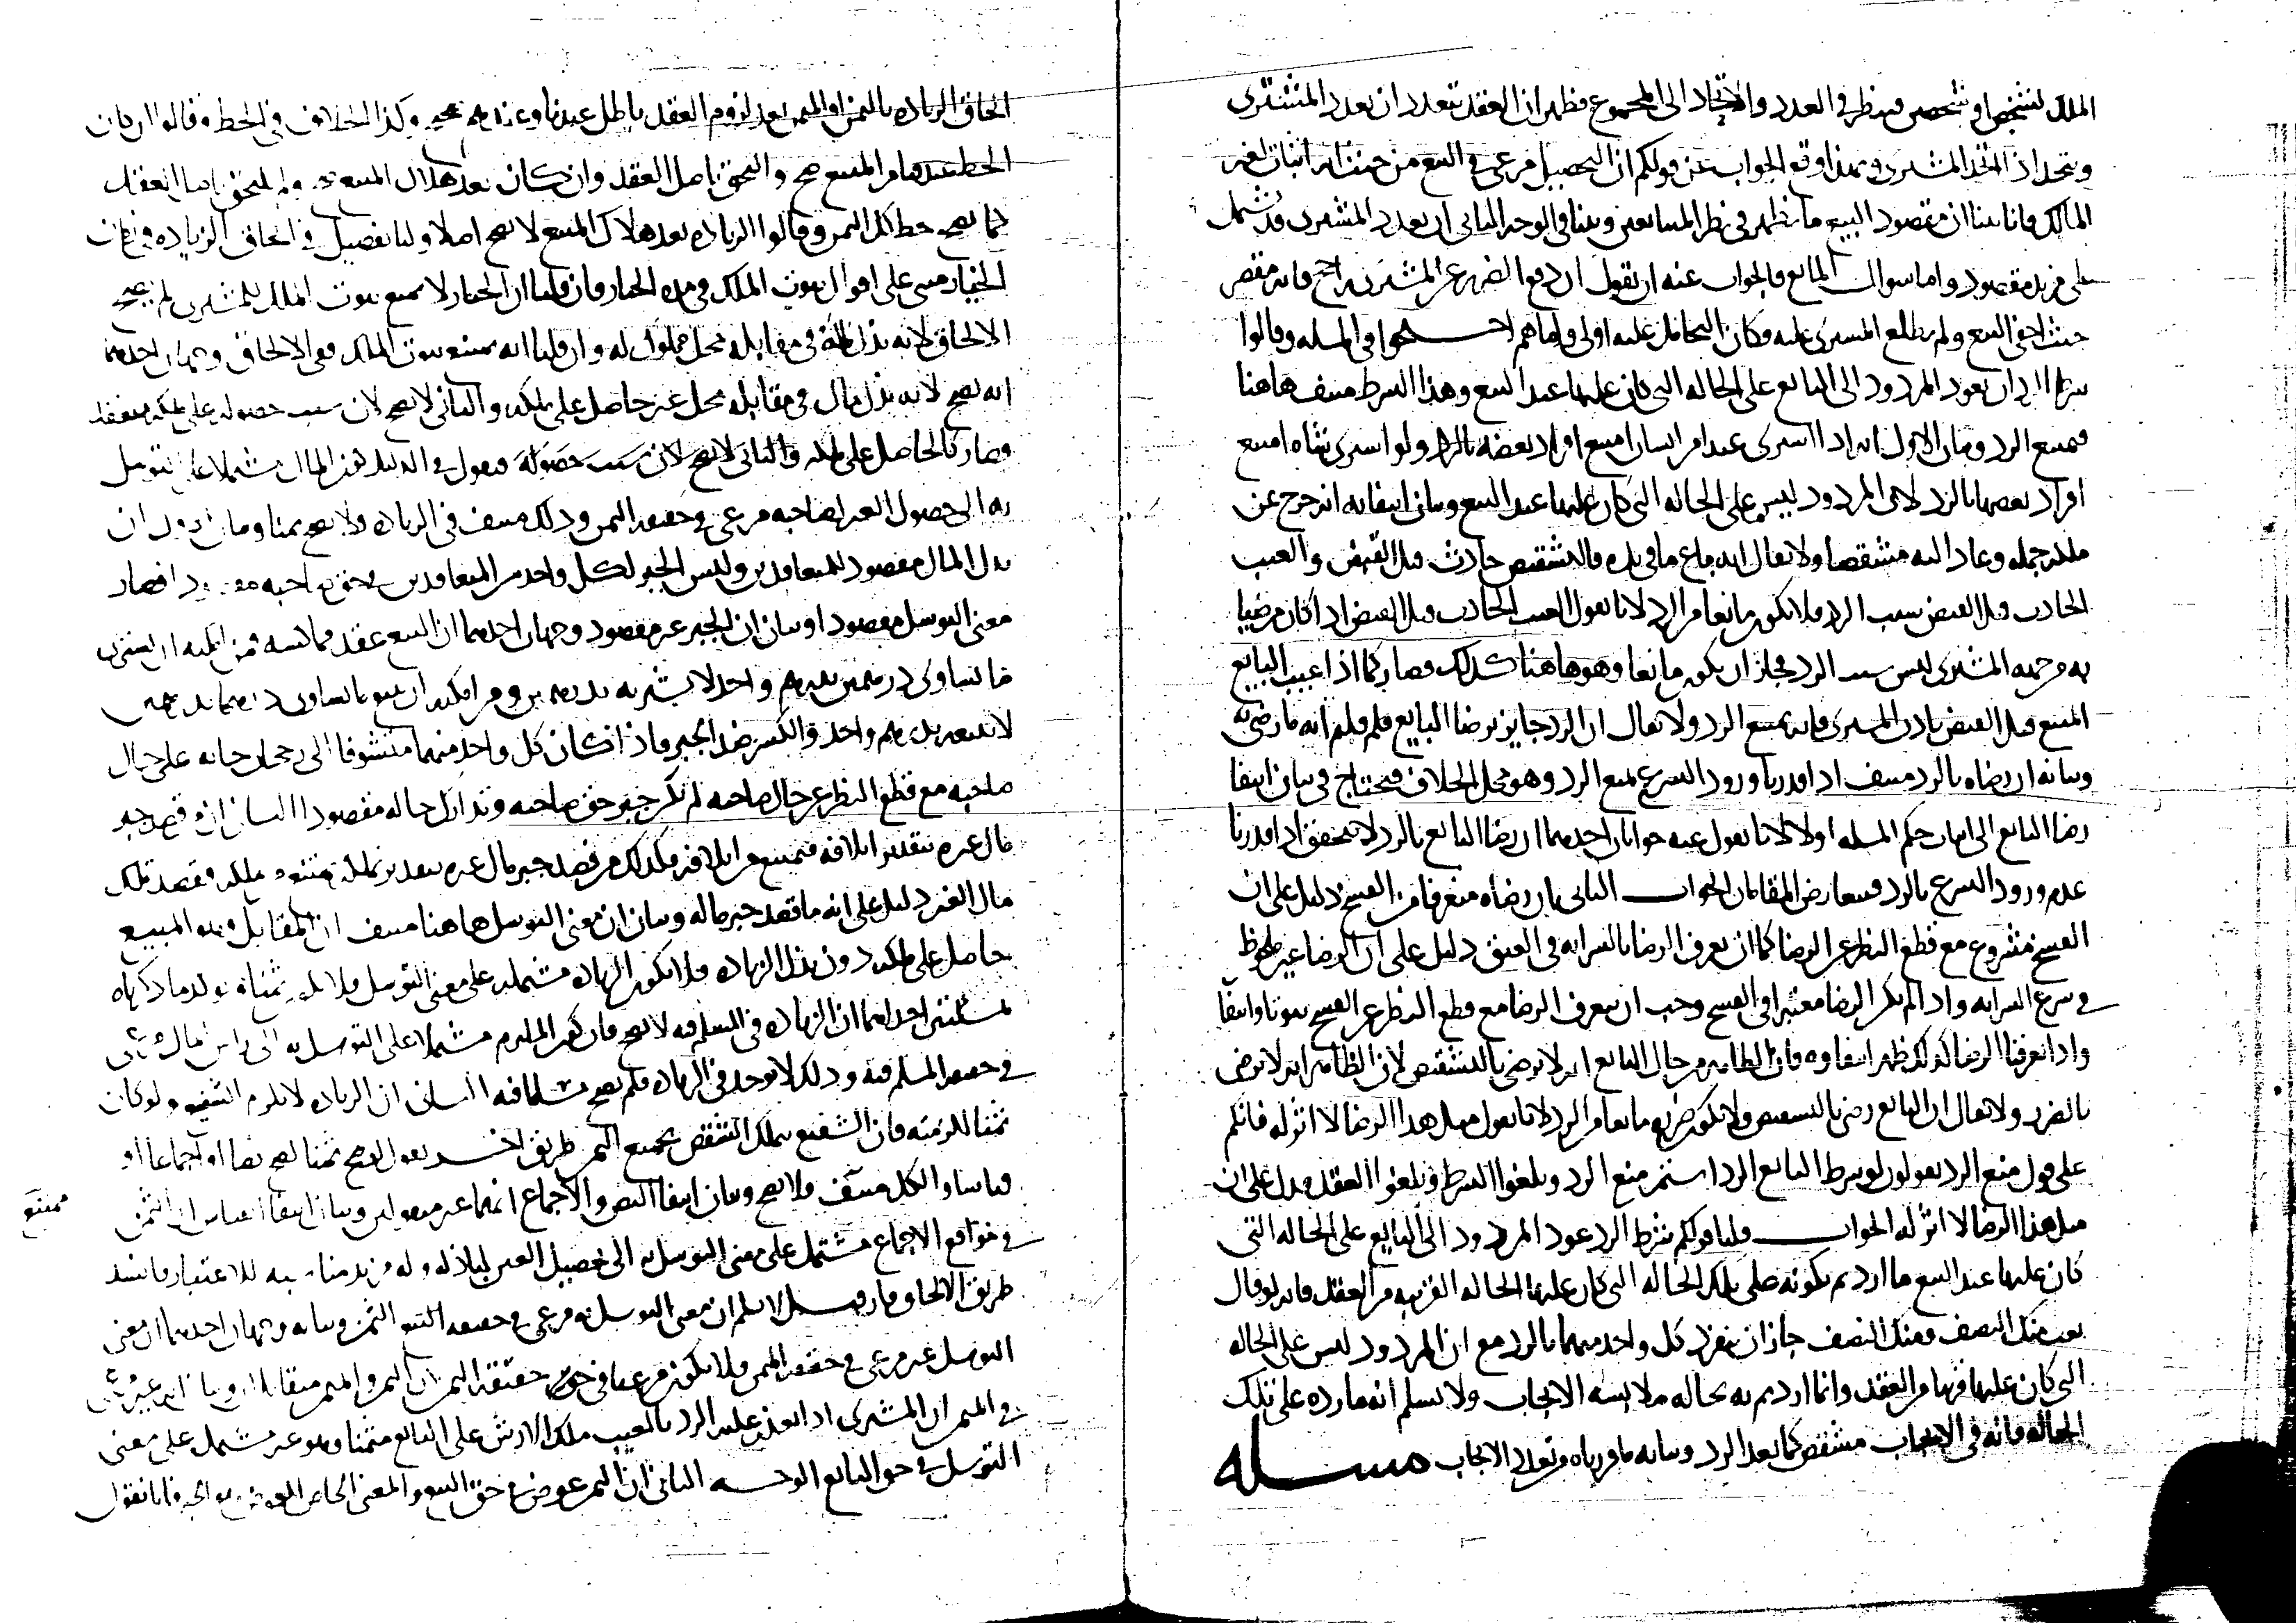 الملك لشخص او شخصين فينظر في العدد والاتحاد الى المجموع فظهر ان العقد يتعدد ان تعدد المشتري
ويتحد اذا اتحد المشتري وبهذا وقع الجواب عن قولكم ان التحصيل مرعي في البيع من حيث انه اثبات لغير
المالك فانا بينا ان مقصود البيع ما يظهر في نظر المتبايعين وبينا في الوجه الثاني ان تعدد المشتري قد يشمل
على مزيد مقصود واما سوال المانع فالجواب عنه ان تقول ان دفع الضرر عن المشتري راجح فانه مقصر
حيث اخفى البيع ولم يطلع المشتري عليه فكان التحامل عليه اولى ولما هم احتجوا في المسله وقالوا
شرط الرد ان يعود المردود الى البايع على الحاله التي كان عليها عند البيع وهذا الشرط منتف هاهنا
فيمتنع الرد وبيان الاول انه اذا اشترى عبدا من انسان امتنع افراد بعضه بالرد ولو اشترى شاه امتنع
افراد بعضها بالرد لان المردود ليس على الحاله التي كان عليها عند البيع وبيان انتفايه انه خرج عن
ملكه جمله وعاد اليه مشقصا ولا يقال انه باع ما في يده فالتشقيص حادث قبل القبض والعيب
الحادث قبل القبض سبب الرد فلا يكون مانعا من الرد لانا نقول العيب الحادث قبل القبض اذا كان مرضيا
به من جهه المشتري ليس سبب الرد فجاز ان يكون مانعا وهو هاهنا كذلك فصار كما اذا عيب البايع
المبيع قبل القبض باذن المشتري فانه يمتنع الرد ولا يقال ان الرد جايز برضا البايع فلم قلتم انه ما رضي به
وبيانه ان رضاه بالرد منتف اذا قدرنا ورود الشرع بمنع الرد وهو محل الخلاف فيحتاج في بيان انتفا
رضا البايع الى اثبات حكم المسله اولا لانا نقول عنه جوابان احدهما ان رضا البايع بالرد لا يتحقق اذا قدرنا
عدم ورود الشرع بالرد فيتعارض المقامان الجواب الثاني بان رضاه متعرف فان الفسخ دليل على ان
الفسخ مشروع مع قطع النظر عن الرضا كما ان تعرف الرضا بالسرايه في العتق دليل على ان الرضا غير ملحوظ
في شرع السرايه واذا لم يكن الرضا معتبرا في الفسخ وجب ان يتعرف الرضا مع قطع النظر عن الفسخ ثبوتا وانتفا
واذا تعرفنا الرضا كذلك ظهر انتفاوه فان الظاهر من حال البايع انه لا يرضى بالتشقيص لان الظاهر انه لا يرضى
بالضرر ولا يقال ان البايع رضي بالتشقيص فلا يكون ضرره مانعا من الرد لانا نقول مثل هذا الرضا لا اثر له فانكم
على قول منع الرد تقولون لو شرط البايع الرد استمر منع الرد ويلغوا الشرط ويلغوا العقد فدل على ان
مثل هذا الرضا لا اثر له الجواب قلنا قولكم شرط الرد عود المردود الى البايع على الحاله التي
كان عليها عند البيع ما اردتم بكونه على تلك الحاله التي كان عليها الحاله القريبه من العقد فانه لو قال
بعت منك النصف ومنك النصف جاز ان ينفرد كل واحد منهما بالرد مع ان المردود ليس على الحاله
التي كان عليها قربها من العقد وانما اردتم به بحاله ملابسه الايجاب ولا نسلم انه ما رده على تلك
الحاله فانه في الايجاب مشقص كما بعد الرد وبيانه ما قررناه من تعدد الايجاب مسله
الحاق الزياده بالثمن او المثمن بعد لزوم العقد باطل عندنا وعندهم صحيح وكذا الخلاف في الحط وقالوا ان كان
الحط عندهم من المبيع صح والتحق باصل العقد وان كان بعد هلاك المبيع صح ولم يلتحق باصل العقد
كما يصح حط كل الثمن وقالوا الزياده بعد هلاك المبيع لا يصح اصلا ولنا تفصيل في الحاق الزياده في زمان
الخيار مبني على اقوال ثبوت الملك في مده الخيار فان قلنا ان الخيار لا يمنع ثبوت الملك للمشتري لم يصح
الالحاق لانه بذل ماله في مقابله محل مملوك له وان قلنا انه يمنع ثبوت الملك ففي الالحاق وجهان احدهما
انه يصح لانه بذل مال في مقابله محل غير حاصل على ملكه والثاني لا يصح لان سبب حصوله على ملكه منعقد
فصار كالحاصل على ملكه والثاني لا يصح لان سبب حصوله فنقول في الدليل كون المال مشتملا على التوسل
به الى حصول العين لصاحبه مرعي في حقيقه الثمن وذلك منتف في الزياده فلا يصح ثمنا وبيان الاول ان
بذل المال مقصود للمتعاقدين وليس الجبر لكل واحد من المتعاقدين في حق صاحبه مقصودا فصار
معنى التوسل مقصودا وبيان ان الجبر غير مقصود وجهان احدهما ان البيع عقد مماكسه فمن امكنه ان يشتري
ما يساوي درهمين بدرهم واحد لا يشتريه بدرهمين ومن امكنه ان يبيع ما يساوي درهما بدرهمين
لا يبيعه بدرهم واحد والكسر ضد الجبر فاذا كان كل واحد منهما متشوفا الى رجحان جانبه على حال
صاحبه مع قطع النظر عن حال صاحبه لم يكن جبر حق صاحبه وتدارك حاله مقصودا الثاني ان من قصد جبر
مال غيره بتقدير اتلافه فيمتنع من اتلافه فكذلك من قصد جبر مال غيره بتقدير تملكه يمتنع من تملكه فقصد تملك
مال الغير دليل على انه ما قصد جبر ماله وبيان ان معنى التوسل هاهنا منتف ان المقابل وهو المبيع
حاصل على ملكه دون بذل الزياده فلا تكون الزياده مشتمله على معنى التوسل فلا يكون ثمنا ويولد ما ذكرناه
بمسئلتين احداهما ان الزياده في المسلم فيه لا تصح فان كون الملتزم مشتملا على التوسل به الى راس المال مرعي
في حقيقه المسلم فيه وذلك لا يوجد في الزياده فلم يصح مسلما فيه الثاني ان الزياده لا تلزم الشفيع ولو كان
ثمنا للزمته فان الشفيع يملك الشقص بجميع الثمن طريق اخر نقول لو صح ثمنا لصح نصا او اجماعا او
قياسا والكل منتف فلا يصح وبيان انتفا النص والاجماع انهما غير منقولين وبيان انتفا القياس ان الثمن
في مواقع الاجماع مشتمل على معنى التوسل به الى تحصيل العين لباذله وله مزيد مناسبه للاعتبار فانسد
طريق الالحاق فان قيل لا نسلم ان معنى التوسل به مرعي في حقيقه الثمن وبيانه وجهان احدهما ان معنى
التوسل غير مرعي في حقيقه المثمن فلا يكون مرعيا في حق حقيقه الثمن لان الثمن والمثمن متقابلان وبيان انه غير مرعي
في المثمن ان المشتري اذا تعذر عليه الرد بالعيب ملك الارش على البايع مثمنا وهو غير مشتمل على معنى
التوسل في حق البايع الوجه الثاني ان الثمن عوض في حق البيع والمعنى الخاص بالعوض هو الجبر فانا نقول
ممتنع